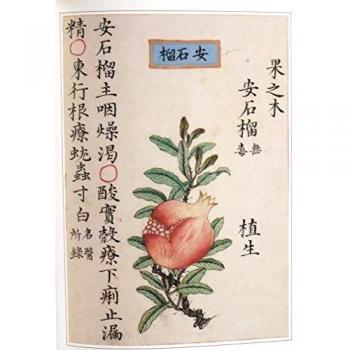 果之木
安石榴 無毒
植生
安石榴
安石榴主咽燥渴○酸實殼療下痢止漏
精○東行根療蚘蟲寸白 名醫所錄